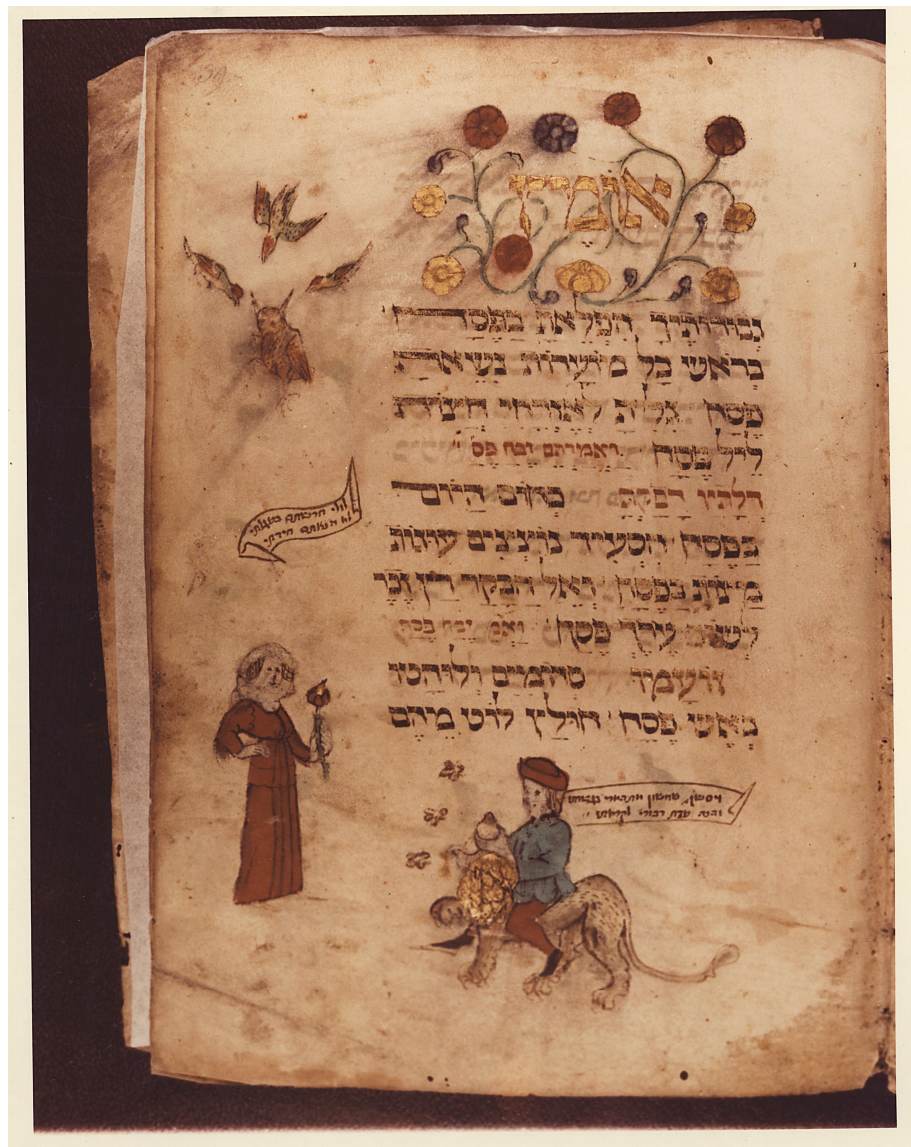 אומץ
גבורותיך הפלאת בפסח
בראש כל מועדות נשאת
פסח גלית לאזרחי חצות
ליל פסח ואמרתם זבח פס
דלתיו דפקת כחום היום
בפסח הסעיד נוצצים עוגות
מצות בפסח ואל הבקר רץ זכר
לשור ערך פסח ואמ זבח פסח
זועמו סדומים ולוהטו
באש פסח חולץ לוט מהם
לולי חרשתם בעגלתי
לא מצאתם חידתי
שמשון
והנה עדת דבורי